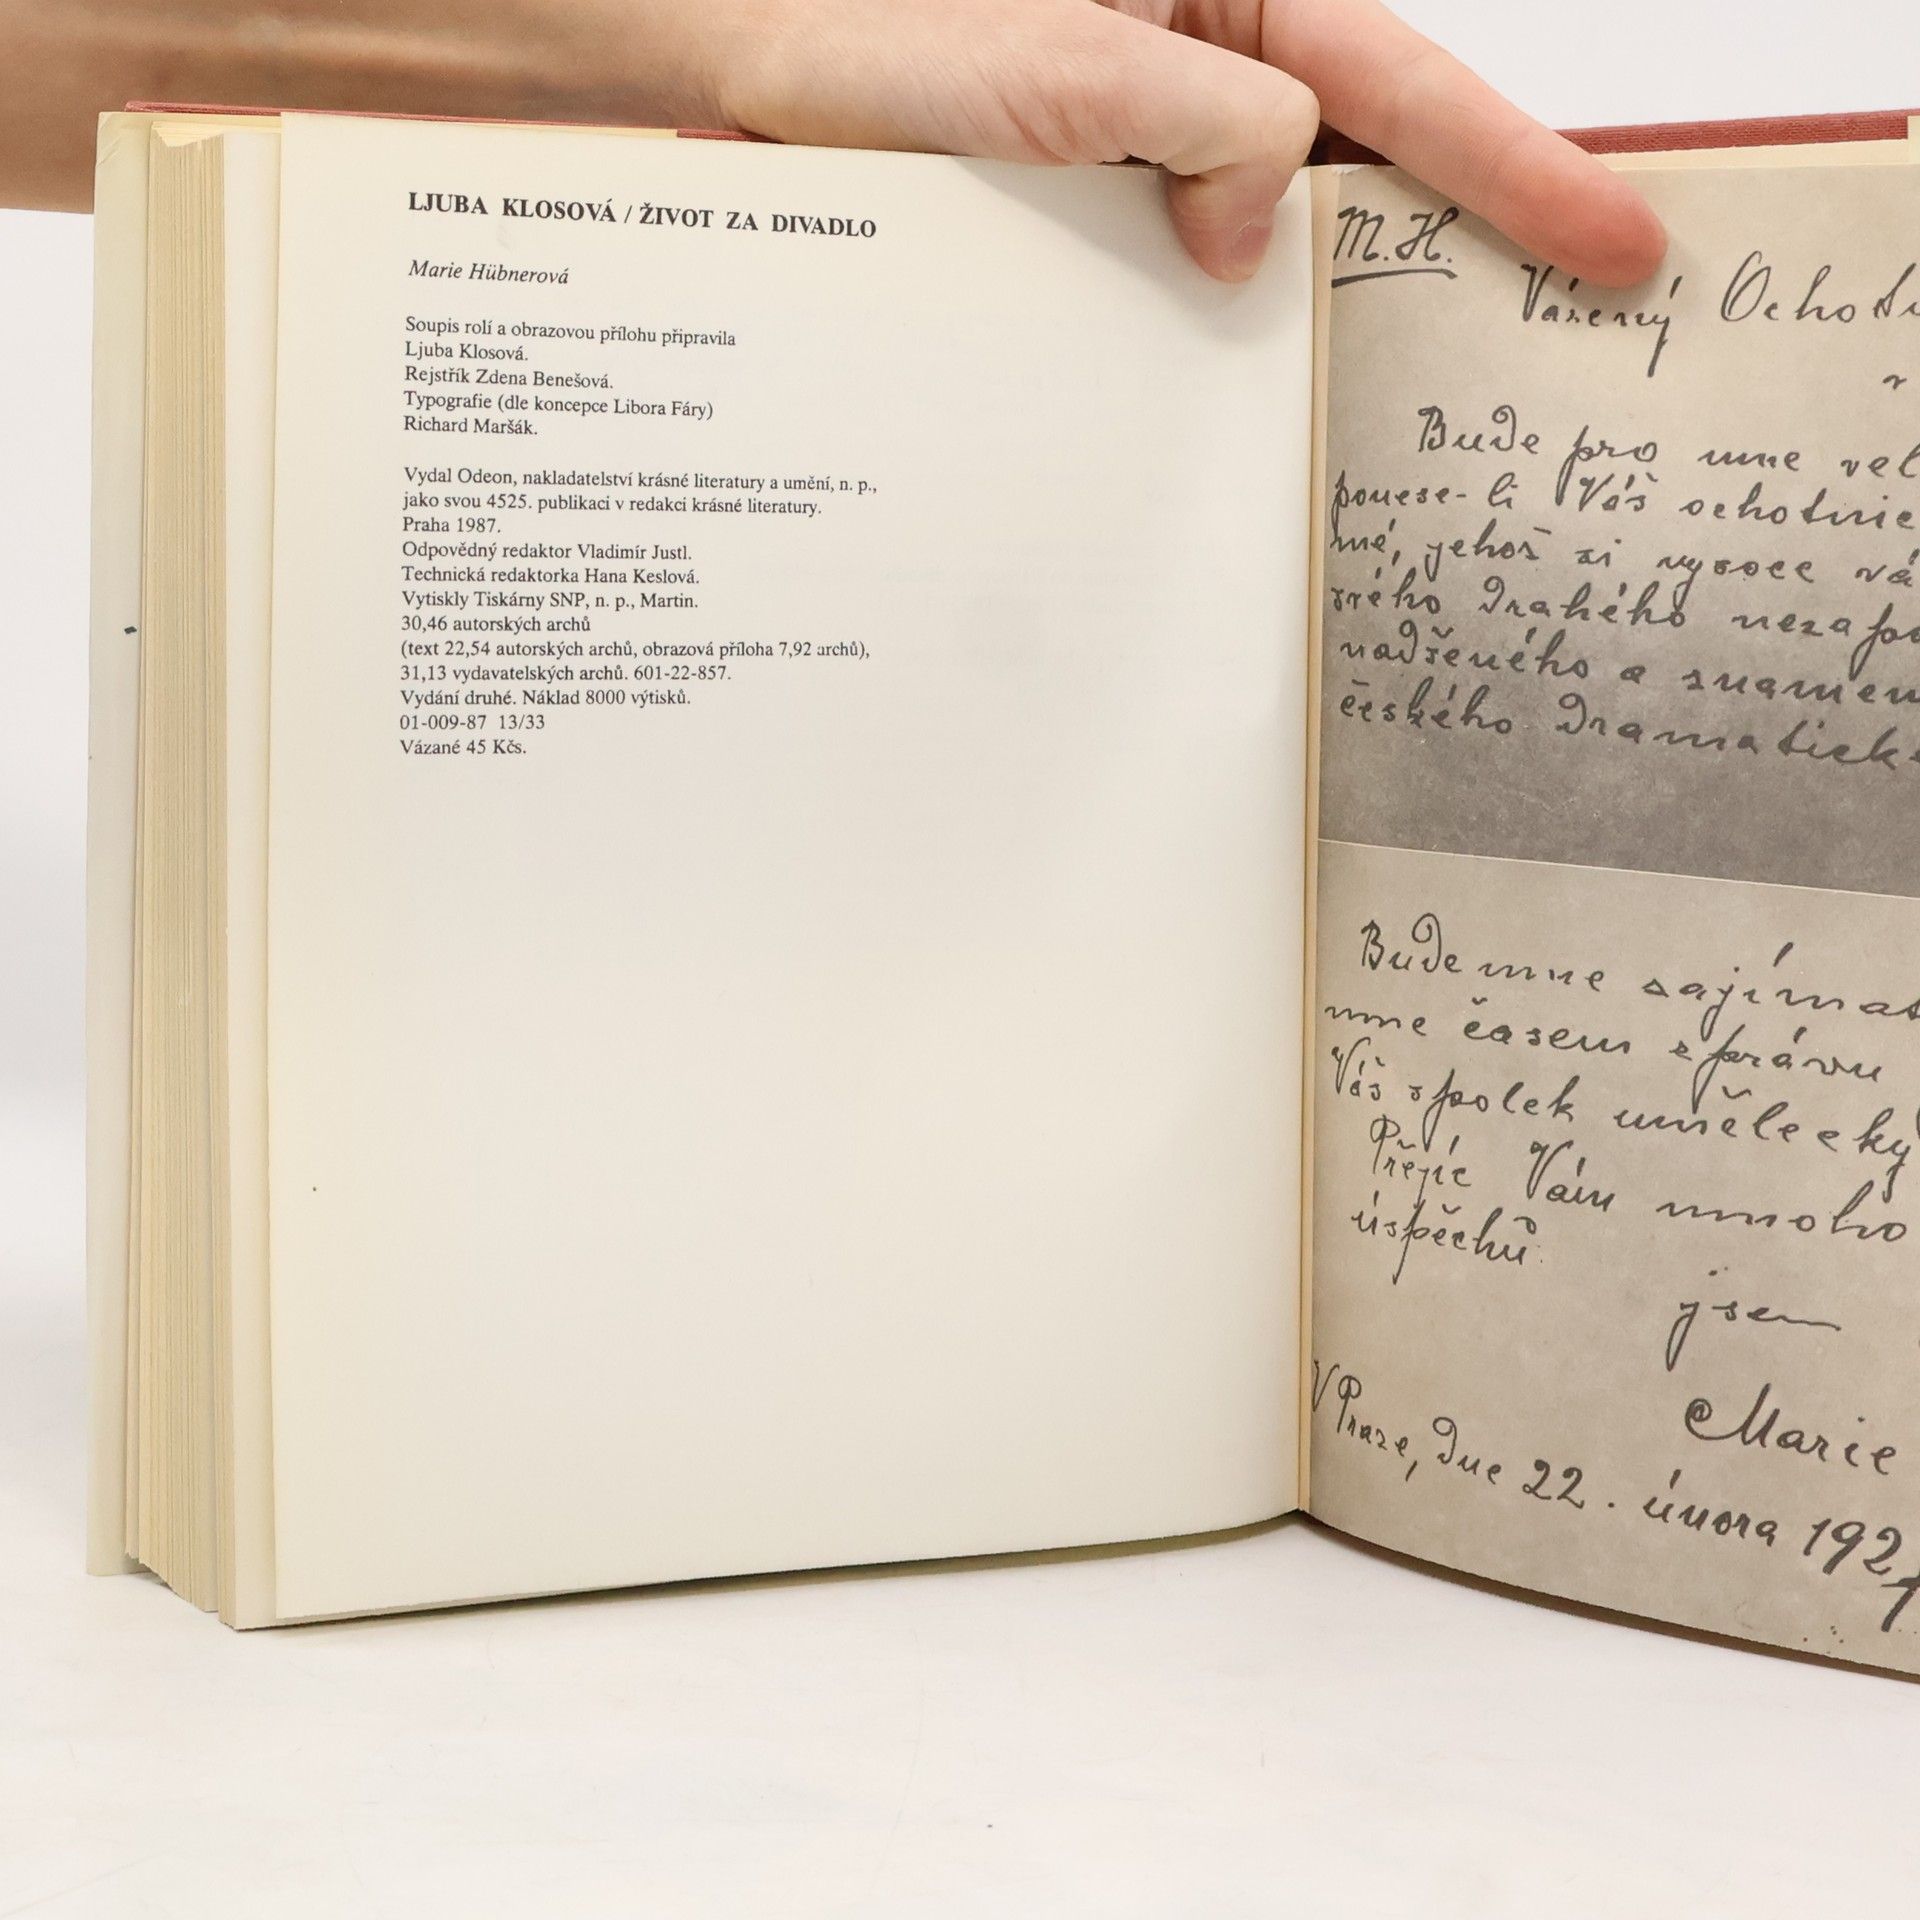 LJUBA KLOSOVÁ / ŽIVOT ZA DIVADLO
Marie Hübnerová
Soupis rolí a obrazovou přílohu připravila
Ljuba Klosová.
Rejstřík Zdena Benešová.
Typografie (dle koncepce Libora Fáry)
Richard Maršák.
Vydal Odeon, nakladatelství krásné literatury a umění, n. p.,
jako svou 4525. publikaci v redakci krásné literatury.
Praha 1987.
Odpovědný redaktor Vladimír Justl.
Technická redaktorka Hana Keslová.
Vytiskly Tiskárny SNP, n. p., Martin.
30,46 autorských archů
(text 22,54 autorských archů, obrazová příloha 7,92 archů),
31,13 vydavatelských archů. 601-22-857.
Vydání druhé. Náklad 8000 výtisků.
01-009-87 13/33
Vázané 45 Kčs.
M. H.
Vázený Ochot
v
Bude pro mne vel
ponese-li Váš ochotnic
mé, jehož si vysoce vá
svého drahého nezapo
nadšeného a znamen
českého dramatick
Bude mne zajímat
mne časem zprávu
Váš spolek umělecky
Přejíc Vám mnoho
úspěchů.
jsem
Marie
V Praze, dne 22. února 192